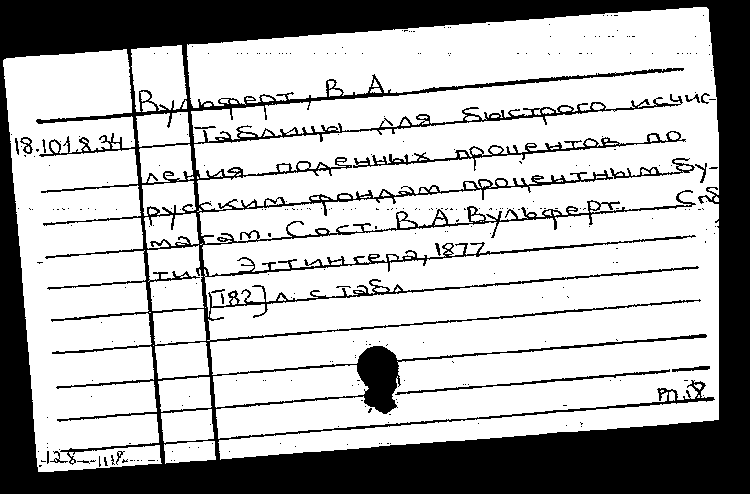 Вульферт, В. А.
18.101.8.34 Таблицы для быстрого исчис-
ления поденных процентов по
русским фондам процентным бу-
магам. Сост. В. А. Вульферт. Спб
тип. Эттингера, 1877
[182] л. с табл
m.i8
128